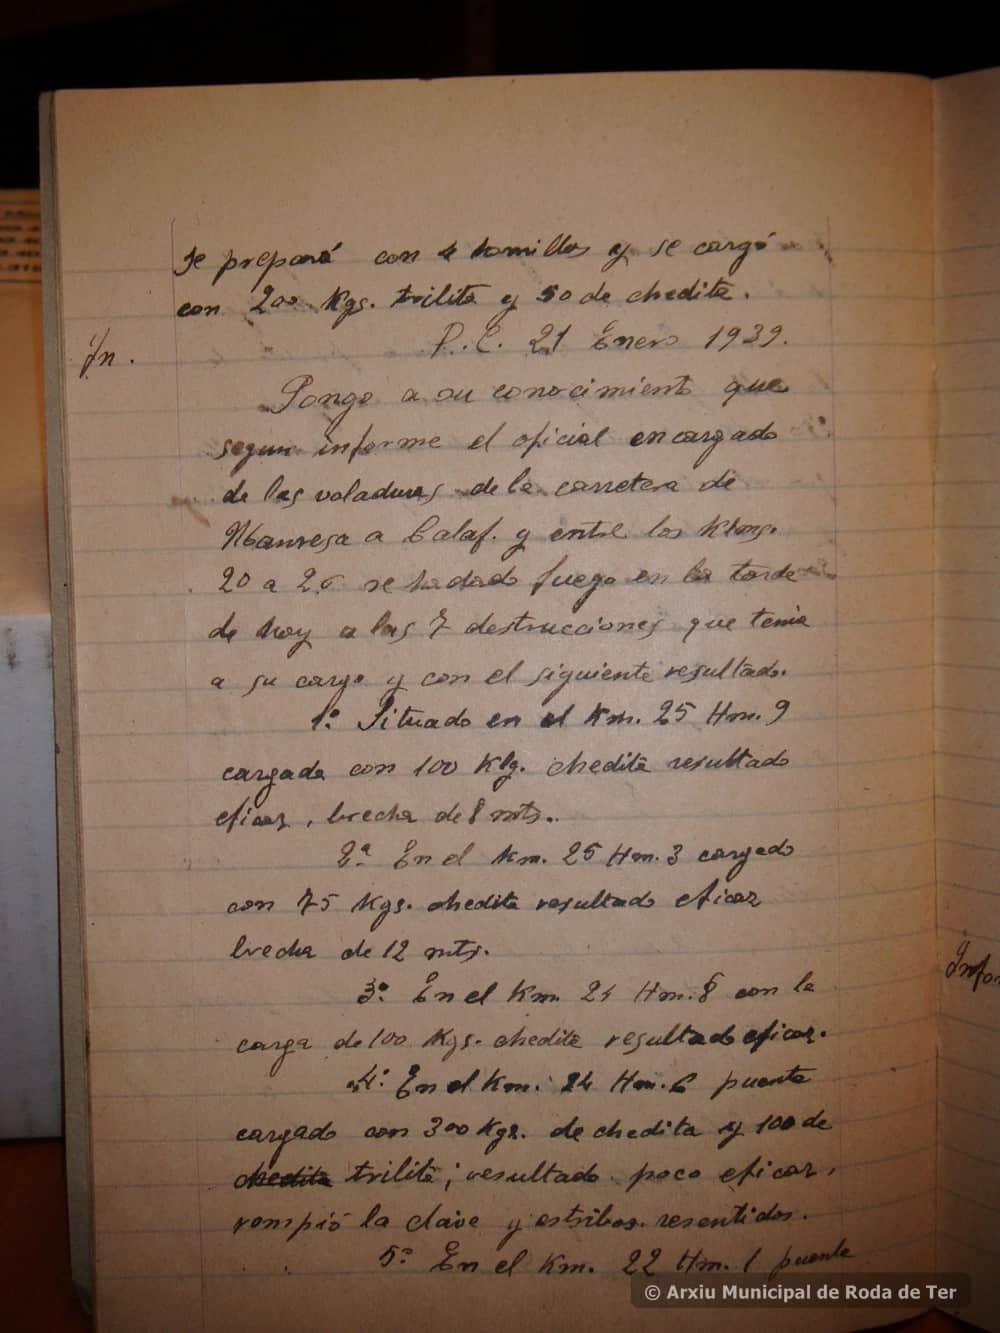 se preparó con 4 hornillos y se cargó
con 200 Kgs. trilita y 50 de chedita.
P.C. 21 Enero 1939.
Yn.
Pongo a su conocimiento que
segun informe el oficial encargado
de las voladuras de la carretera de
Manresa a Calaf. y entre los Klms.
20 a 26 se ha dado fuego en la tarde
de hoy a las 7 destrucciones que tenia
a su cargo y con el siguiente resultado.
1º Situado en el Km. 25 Hm. 9
cargada con 100 Klg. chedita resultado
eficaz, brecha de 8 mts..
2ª En el Km. 25 Hm. 3 cargado
con 75 Kgs. chedita resultado eficaz
brecha de 12 mts.
3º En el Km. 24 Hm. 8 con la
carga de 100 Kgs. chedita resultado eficaz.
4º En el Km. 24 Hm. 6 puente
cargado con 300 Kgs. de chedita y 100 de
chedita trilita; resultado poco eficaz,
rompió la clave y estribos resentidos.
5º En el Km. 22 Hm. 1 puente
Infor
© Arxiu Municipal de Roda de Ter